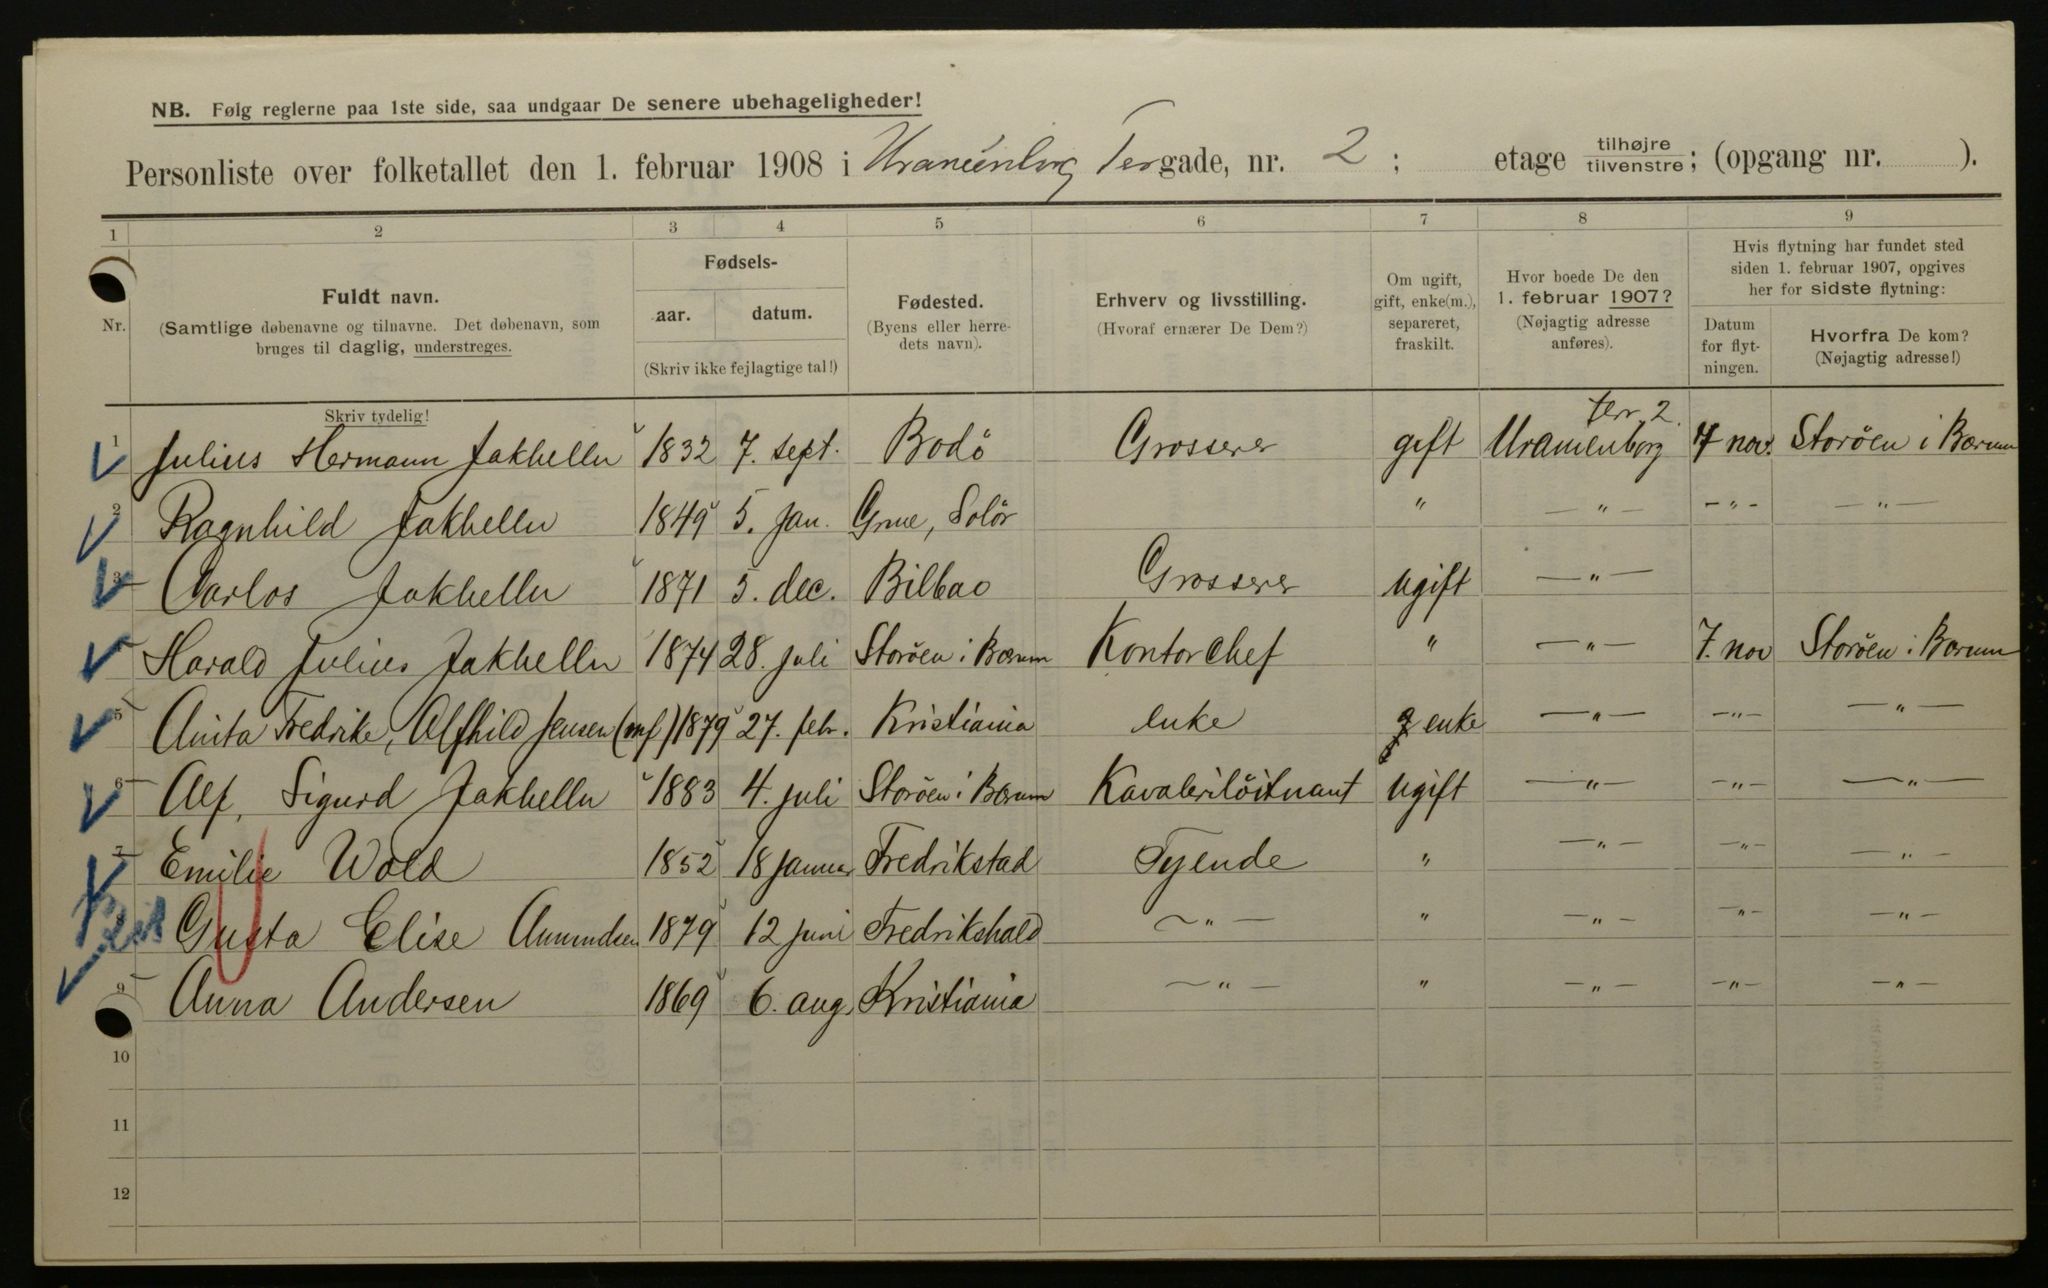 NB. Følg reglerne paa 1ste side, saa undgaar De senere ubehageligheder!
Personliste over folketallet den 1. februar 1908 i Uranienborg Tergade, nr. 2 ; etage tilhøjre tilvenstre; (opgang nr. ).
1 2 3 4 5 6 7 8 9
Nr.
Fuldt navn.
(Samtlige døbenavne og tilnavne. Det døbenavn, som
bruges til daglig, understreges.
Skriv tydelig!
Fødsels-
aar. datum.
(Skriv ikke fejlagtige tal!)
Fødested.
(Byens eller herre-
dets navn).
Erhverv og livsstilling.
(Hvoraf ernærer De Dem?)
Om ugift,
gift, enke(m.),
separeret,
fraskilt.
Hvor boede De den
1. februar 1907?
(Nøjagtig adresse
anføres).
Hvis flytning har fundet sted
siden 1. februar 1907, opgives
her for sidste flytning:
Datum
for flyt-
ningen.
Hvorfra De kom?
(Nøjagtig adresse!)
terr, 2
1 Julius Hermann Jakhelln 1832 7. sept. Bodö Grosserer gift Uranienborg 7 nov. Storöen i Bærum
2 Ragnhild Jakhelln 1849 5. jan. Grue, Solör " — " — - " - — " —
3 Carlos Jakhelln 1871 5. dec. Bilbao Grosserer ugift — " —
4 Harald Julius Jakhelln 1874 28. juli Storöen i Bærum Kontorchef " — " — 7. nov Storöen i Bærum
5 Anita Fredrike, Alfhild Jensen (enf) 1879 27. febr. Kristiania enke enke — " — - " - — " —
6 Alf, Sigurd Jakhelln 1883 4. juli Storöen i Bærum Kavaleriløitnant ugift — " — - " - — " —
7 Emilie Wold 1852 18 januar Fredrikstad Tyende " — " — - " - — " —
8 Gusta Elise Amundsen 1879 12 juni Fredrikshald — " — " — " — - " - — " —
9 Anna Andersen 1869 6. aug. Kristiania — " — " — " — - " - — " —
10
11
12